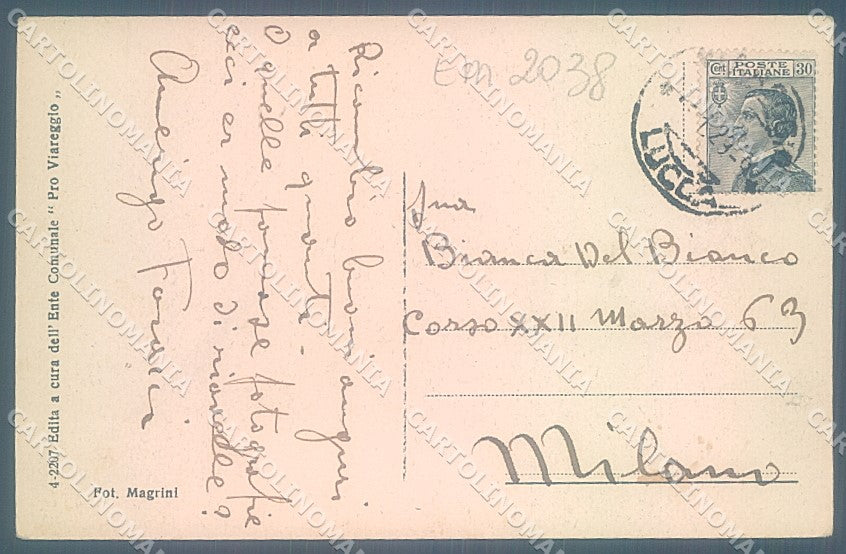 Ricambio buoni auguri
a tutti quanti.
O quelle famose fotografie
c'è modo di riaverle?
Amerigo
Eon 2038
Cent. POSTE ITALIANE 30
LUCCA
Bianca Del Bianco
Corso XXII Marzo 63
Milano
4-2207 Edita a cura dell' Ente Comunale " Pro Viareggio "
Fot. Magrini
CARTOLINOMANIA